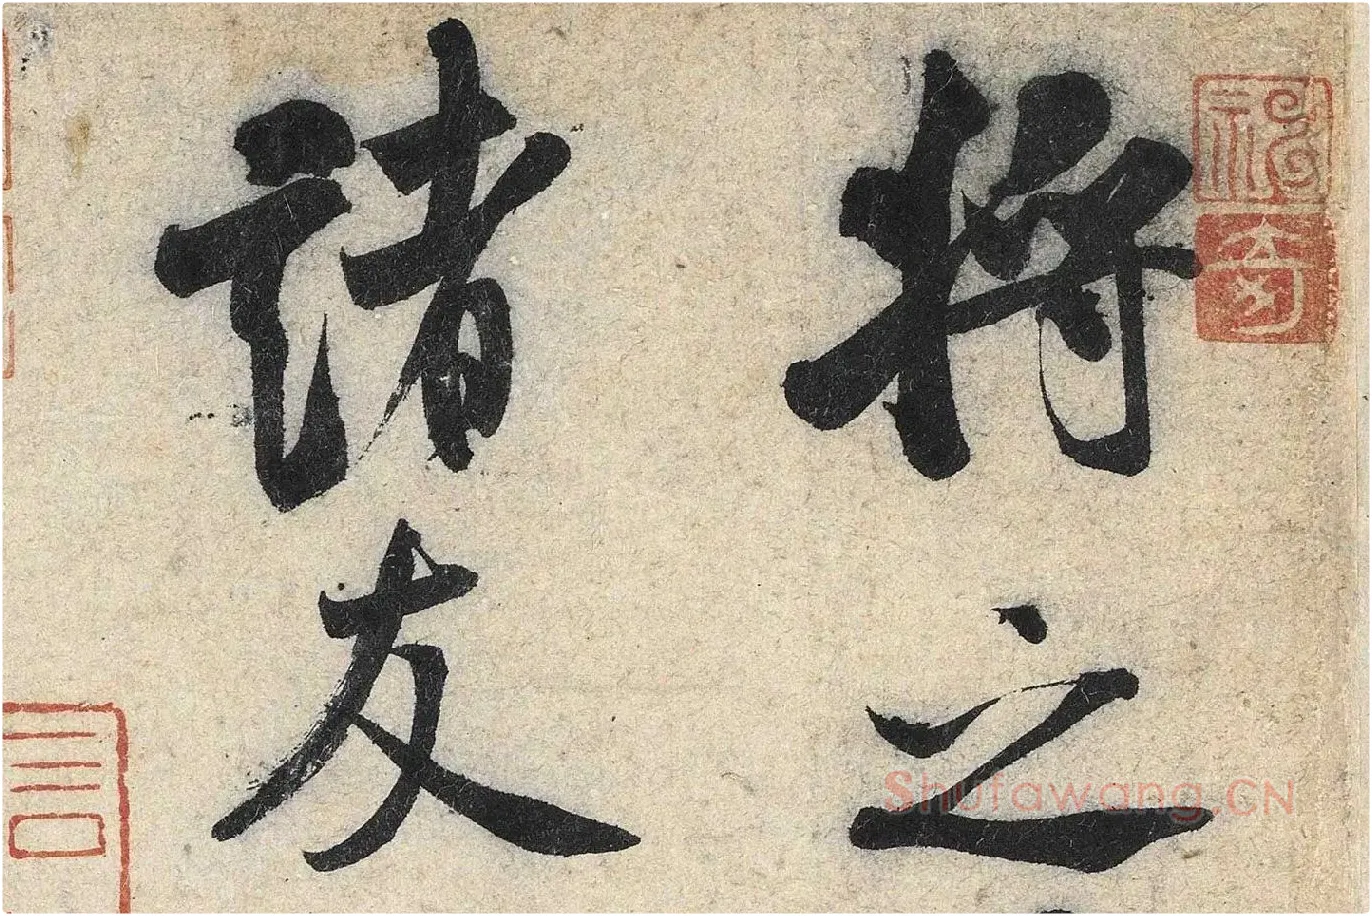 將之
諸友
Shufawang.CN